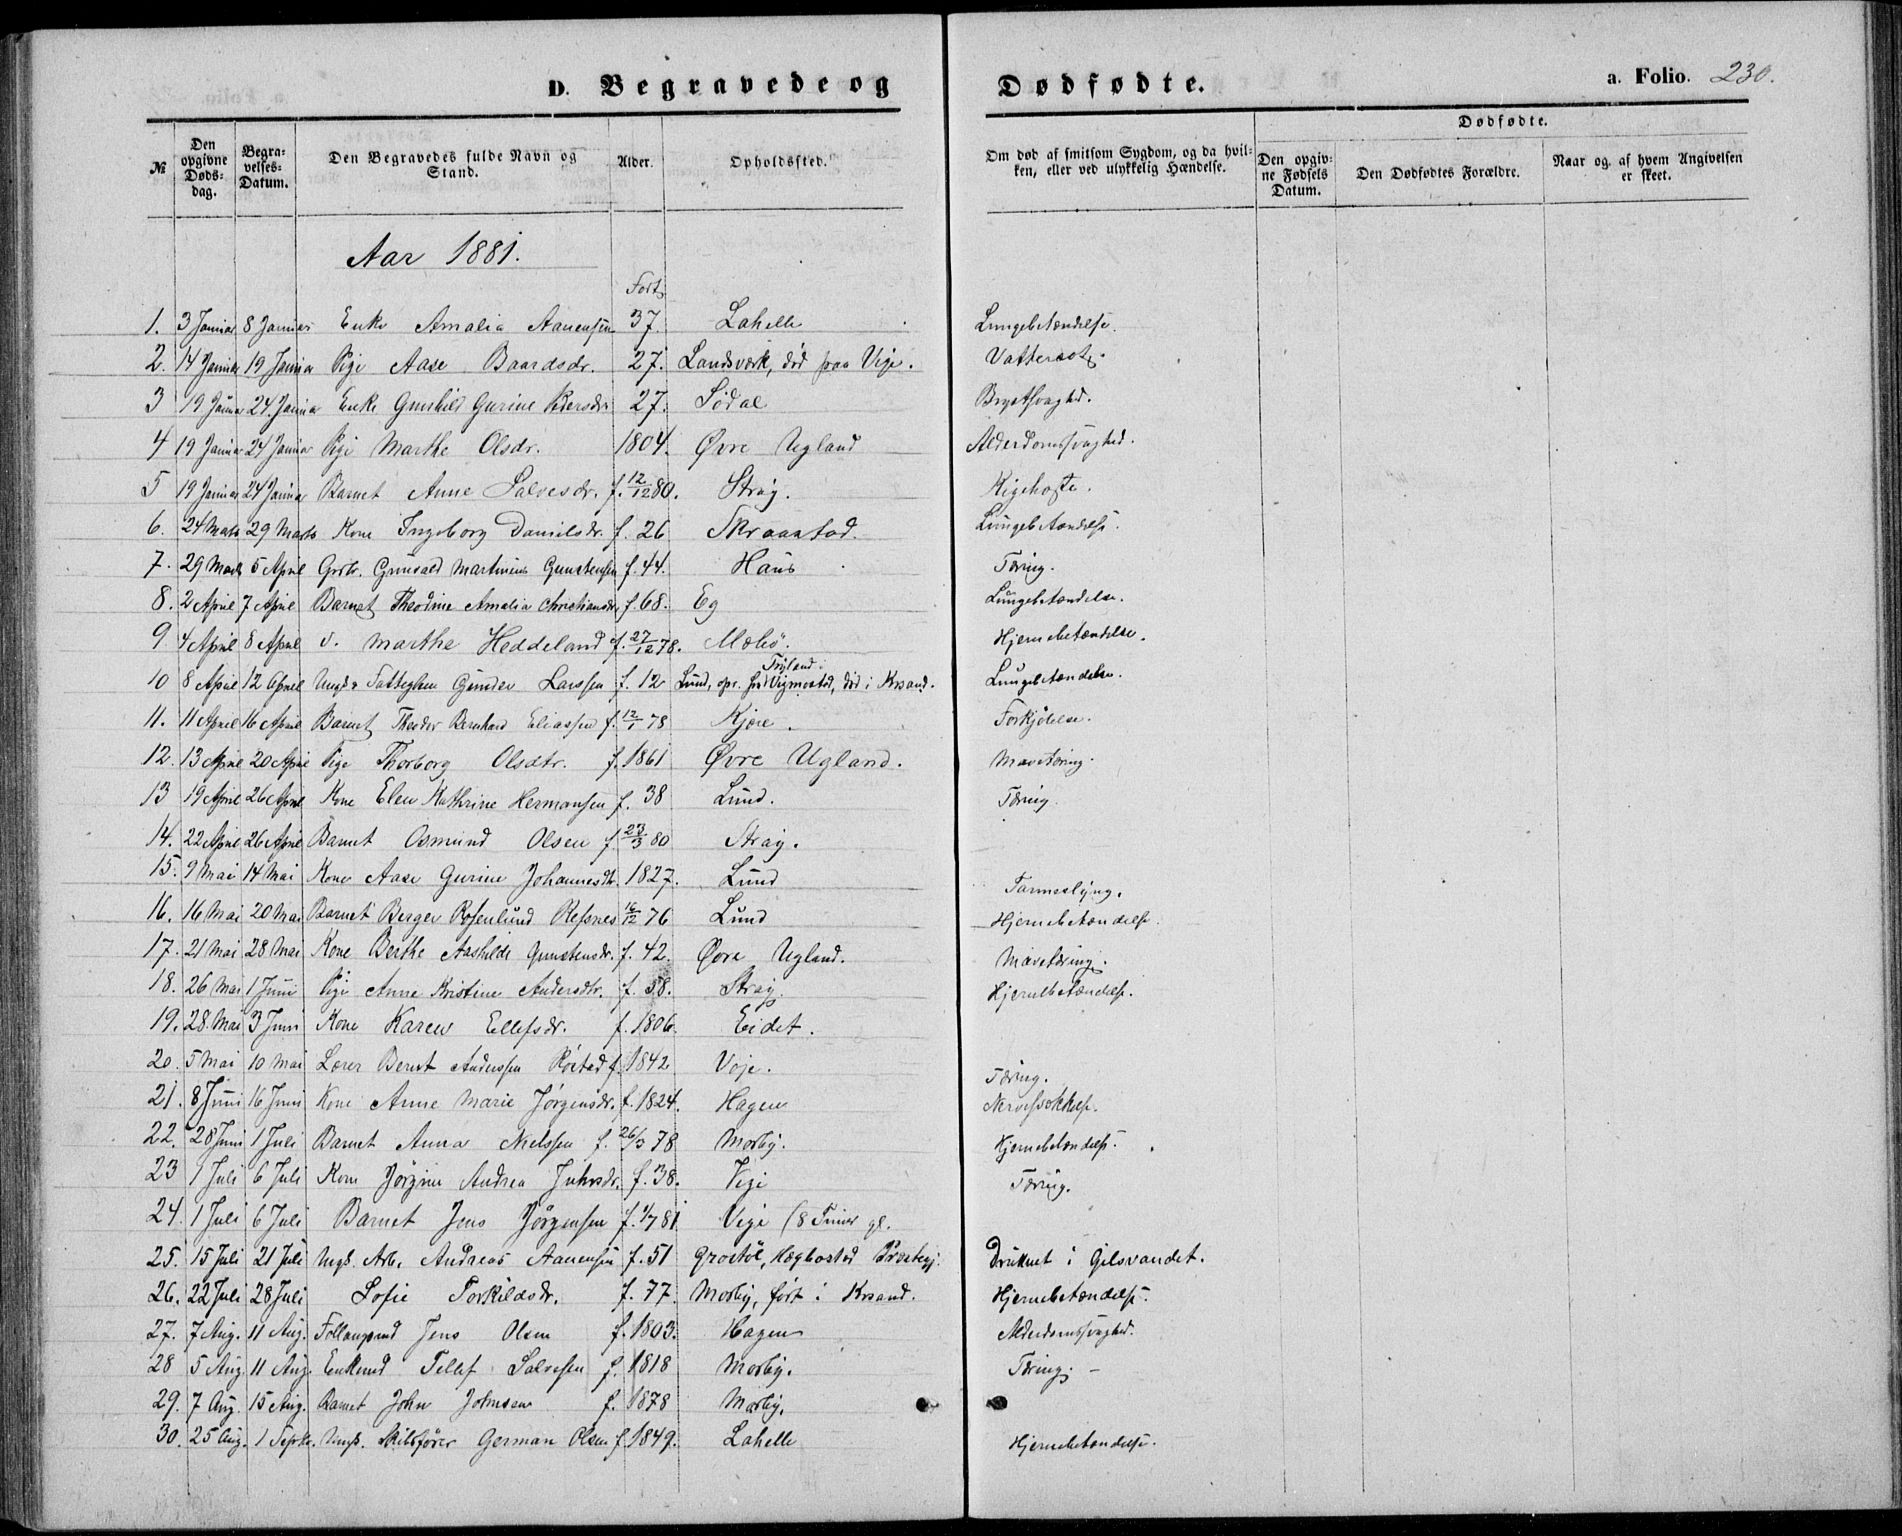 D. Begravede og Dødfødte. a. Folio. 230.
№ Den opgivne Døds-dag. Begra-velses-Datum. Den Begravedes fulde Navn og Stand. Alder. Opholdssted. Om død af smitsom Sygdom, og da hvil-ken, eller ved ulykkelig Hændelse. Dødfødte. Den opgiv-ne Fødsels Datum. Den Dødfødtes Forældre. Naar og af hvem Angivelsen er skeet.
Aar 1881.
Født
1. 3 Januar 8 Januar Enke Amalia Aanensen 37. Lahelle Lungebetændelse.
2. 14 Januar 19 Januar Pige Aase Baardsdr. 27. Landsværk, død paa Vige. Vattersot.
3 19 Januar 24 Januar Enke Gunhild Gurine Pedersdr 27. Sødal Brystsvaghed.
4 19 Januar 24 Januar Pige Marthe Olsdr. 1804. Øvre Ugland Alderdomssvaghed.
5 19 Januar 24 Januar Barnet Anne Salvesdr. f. 12/12 80. Stray. Kighoste.
6. 24 Marts 29 Marts Kone Ingeborg Danielsdr. f. 26 Skraastad. Lungebetændelse.
7. 29 Marts 5 April Grdbr. Grunvald Martinius Gunstensen f. 44. Haus Tæring.
8. 2 April 7 April Barnet Theodine Amalia Christiansdr. f. 68. Eg Lungebetændelse.
9 4 April 8 April d. Marthe Heddeland f. 27/12 78. Mæbø. Hjernebetændelse.
10 8 April 12 April Ungk. Fattiglem Gunder Larssen f. 12 Lund, opr. fra Tryland i Vigmostad, død i Krsand. Lungebetændelse.
11. 11 April 16 April Barnet Theodor Bernhard Eliassen f. 12/1 78 Kjøre. Forkjølelse.
12. 13 April 20 April Pige Thorborg Olsdtr. f. 1861 Øvre Ugland. Mavetæring.
13 19 April 26 April Kone Elen Kathrine Hermansen f. 38 Lund. Tæring
14. 22 April 26 April Barnet Osmund Olsen f. 23/3 80 Stray.
15. 9 Mai 14 Mai Kone Aase Gurine Johannesdtr. 1827. Lund Tarmeslyng.
16. 16 Mai 20 Mai Barnet Berger Rosenlund Refsnes 16/12 76 Lund Hjernebetændelse.
17. 21 Mai 28 Mai Kone Berthe Aashilde Gunstensdr. f. 42. Øvre Ugland. Mavetæring.
18. 26 Mai 1 Juni Pige Anne Kristine Andersdtr. f. 58. Stray. Hjernebetændelse.
19. 28. Mai 3 Juni Kone Karen Ellefsdr. f. 1806. Eidet.
20. 5 Mai 10 Mai Lærer Bernt Anderssen Røistad f. 1842 Voje. Tæring.
21. 8 Juni 16 Juni Kone Anne Marie Jørgensdr. f. 1824. Hagen Nervesvækkelse.
22. 28 Juni 1 Juli Barnet Anna Nielssen f. 26/3 78 Mosby. Hjernebetændelse.
23 1 Juli 6 Juli Kone Jørgine Andrea Juhrsdr. f. 38. Vige Tæring.
24. 1 Juli 6 Juli Barnet Jens Jørgensen f. 1/7 81 Vige (8 Timer gl.
25. 15 Juli 21 Juli Ungk. Arb. Andreas Aanensen f. 51 Grostøl, Hægbostad Præstegj. Druknet i Gilsvandet.
26. 22 Juli 28 Juli Sofie Torkildsdr. f. 77. Mosby, født i Krsand. Hjernebetændelse.
27. 7 Aug. 11 Aug. Follaugsmd Jens Olsen f. 1803. Hagen Alderdomssvaghed.
28 5 Aug. 11 Aug. Enkemd Tellef Salvesen f. 1818 Mosby. Tæring. –
29. 7 Aug. 15 Aug. Barnet John Johnsen f. 1878 Mosby.
30. 25 Aug. 1 Septbr. Ungk. Skibsfører German Olsen f. 1849. Lahelle Hjernebetændelse.